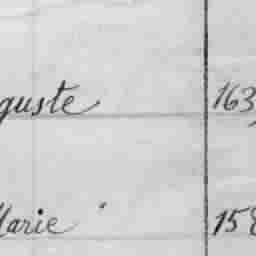 guste 163
Marie " 15